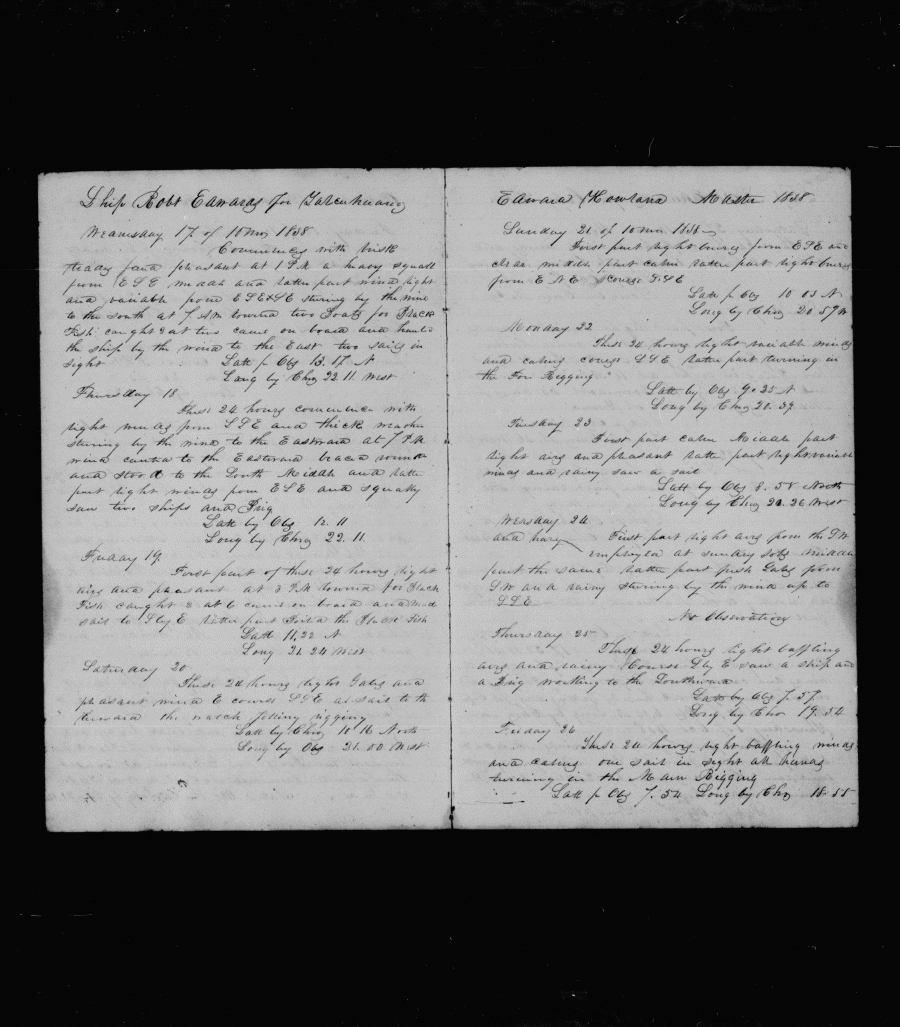 Ship Robt Edwards for
Wednesday 17 of 10 mo 1838
Commences with brisk
trades and pleasant at 1 PM a heavy squall
from ESE middle and latter part wind light
and variable from ESE & SE stering by the wind
to the South at 7 AM lowered two Boats for Black
Fish caught 2 at two came on board and hauled
the ship by the wind to the East two sails in
sight Latt p Obs 13.17 N
Long by Chro 22 11 West
Thursday 18
These 24 hours commence with
light winds from SSE and thick weather
stering by the wind to the Eastward at 7 PM
wind canted to the Eastward braced round
and stood to the South Middle and latter
part light winds from ESE and squally
saw two ships and Brig
Latt by Obs 12.11
Long by Chro 22.11
Friday 19
First part of these 24 hours light
airs and pleasant at 3 PM lowered for Black
Fish caught 2 at 6 came on board and made
sail to SbyE latter part Boild the Black Fish
Latt 11.22 N
Long 21 24 West
Saturday 20
These 24 hours light Gales and
pleasant wind E course SSE a sail to the
the watch rigging
Latt by Chro 10 16 North
Long by Obs 21.00 West
Edward Howland Master 1838
Sunday 21 of 10 mo 1838
First part light breezes from ESE and
clear middle part calm latter part light breezes
from ENE Course SSE
Latt p Obs 10 03 N
Long by Chro 20 57 W
Monday 22
These 24 hours light variable winds
and calms course SSE latter part turning in
the Fore Rigging
Latt by Obs 9.25 N
Long by Chro 20.39
Tuesday 23
First part calm Middle part
light airs and pleasant latter part light variable
winds and rainy saw a sail
Latt by Obs 8.58 North
Long by Chro 20.26 West
Wensday 24
First part light airs from the SW
employed at sundry jobs middle
part the same latter part fresh Gales from
SW and rainy stering by the wind up to
SSE
No Observation
Thursday 25
These 24 hours light baffling
airs and rainy Course SbyE saw a ship and
a Brig working to the Southward
Latt by Obs 7.57
Long by Chro 19.54
Friday 26
These 24 hours light baffling winds
and calms one sail in sight all hands
turning in the Main Rigging
Latt p Obs 7.54 Long by Chro 18.55